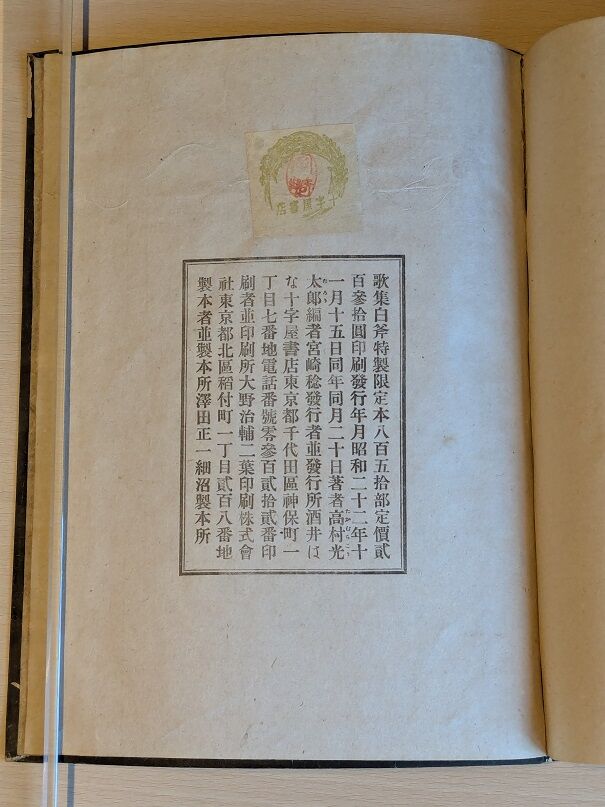 十字屋書店
歌集白斧特製限定本八百五拾部定價貳
百參拾圓印刷發行年月昭和二十二年十
一月十五日同年同月二十日著者高村光
太郎編者宮崎稔發行者並發行所酒井は
な十字屋書店東京都千代田區神保町一
丁目七番地電話番號零參百貳拾貳番印
刷者並印刷所大野治輔二葉印刷株式會
社東京都北區稻付町一丁目貳百八番地
製本者並製本所澤田正一細沼製本所